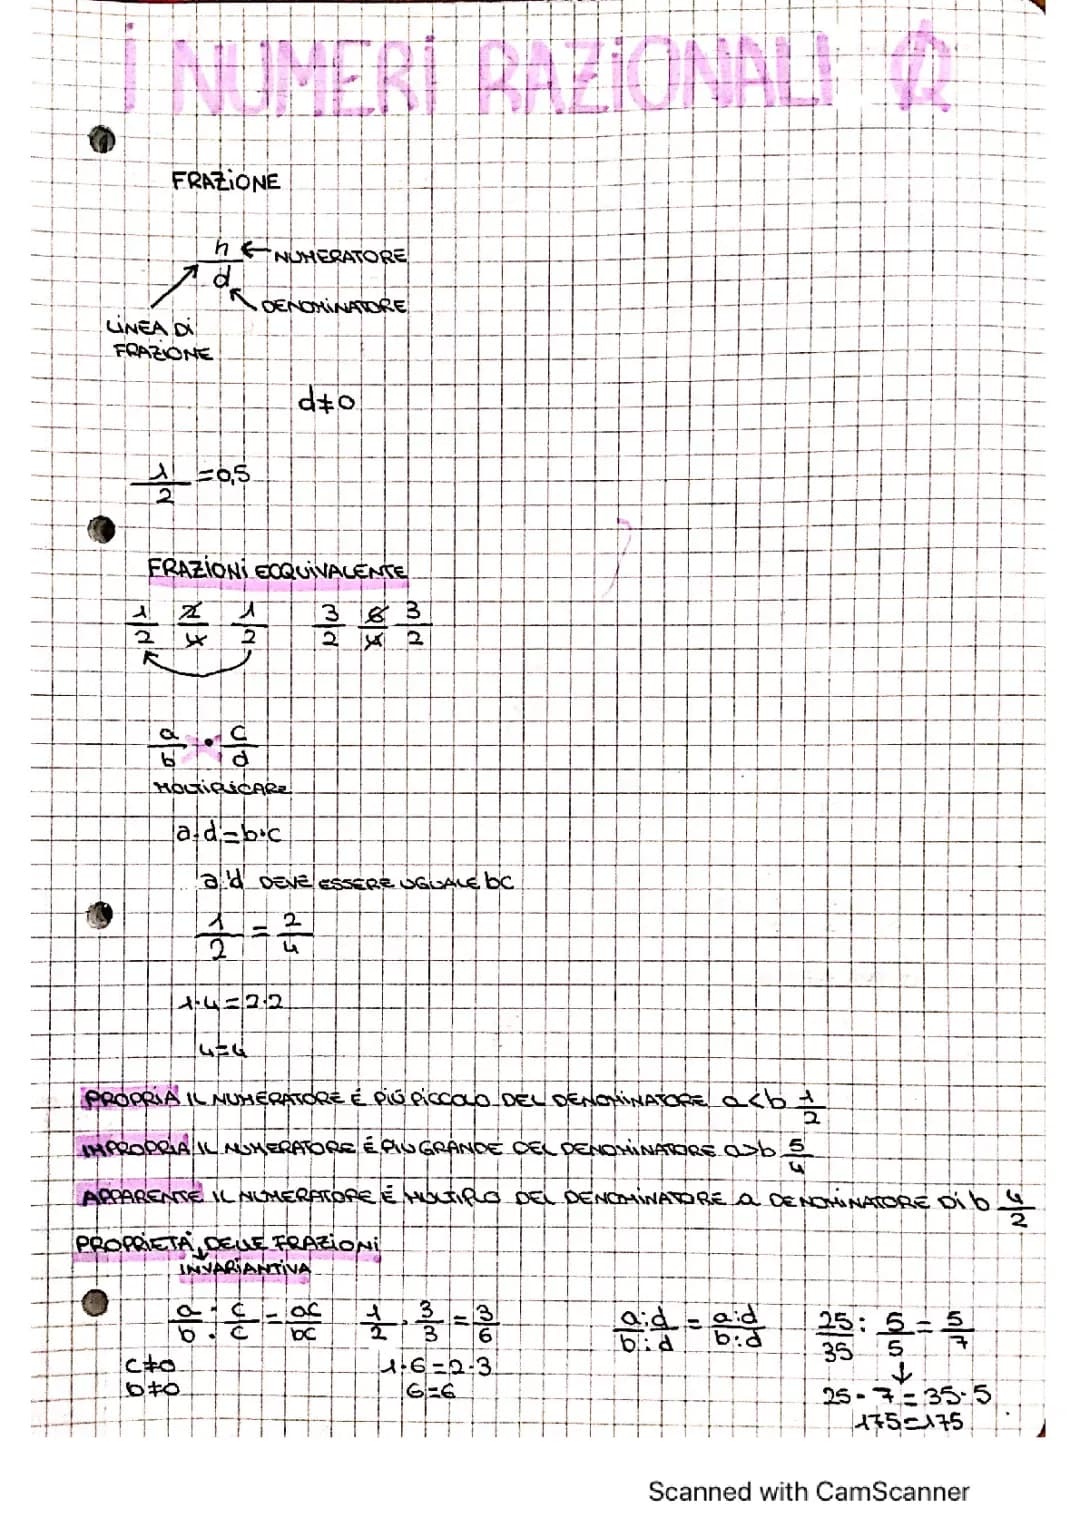 I NUMERI RAZIONALI Q
FRAZIONE
n ← NUMERATORE
d
DENOMINATORE
LINEA DI
FRAZIONE
d≠0
1/2 = 0,5
FRAZIONI ECQUIVALENTE
1/2 2/4 1/2 3/2 6/4 3/2
a/b · c/d
MOLTIPLICARE
a·d=b·c
a·d DEVE ESSERE UGUALE bc
1/2 = 2/4
1·4=2·2
4=4
PROPRIA IL NUMERATORE É PIÚ PICCOLO DEL DENOMINATORE a<b 1/2
IMPROPRIA IL NUMERATORE É PIU GRANDE DEL DENOMINATORE a>b 5/4
APPARENTE IL NUMERATORE É MULTIPLO DEL DENOMINATORE a DENOMINATORE DI b 4/2
PROPRIETÀ DELLE FRAZIONI
INVARIANTIVA
a/b · c/c = ac/bc 1/2 · 3/3 = 3/6 a:d/b:d = a:d/b:d 25/35 : 5/5 = 5/7
c≠0 1·6=2·3
b≠0 6=6 25·7=35·5
175=175
Scanned with CamScanner